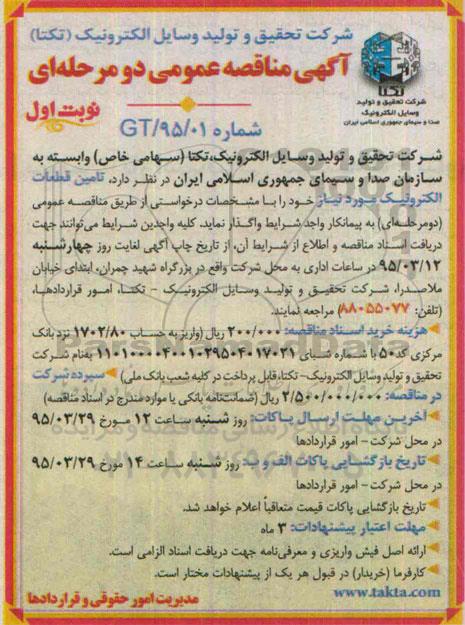 شرکت تحقیق و تولید وسایل الکترونیک (تکتا)
آگهی مناقصه عمومی دو مرحله‌ای
نوبت اول
شماره GT/۹۵/۰۱
تکتا
شرکت تحقیق و تولید
وسایل الکترونیک
صدا و سیمای جمهوری اسلامی ایران
شرکت تحقیق و تولید وسایل الکترونیک،تکتا (سهامی خاص) وابسته به
سازمان صدا و سیمای جمهوری اسلامی ایران در نظر دارد، تامین قطعات
الکترونیک مورد نیاز خود را با مشخصات درخواستی از طریق مناقصه عمومی
(دومرحله‌ای) به پیمانکار واجد شرایط واگذار نماید. کلیه واجدین شرایط می‌توانند جهت
دریافت اسناد مناقصه و اطلاع از شرایط آن، از تاریخ چاپ آگهی لغایت روز چهارشنبه
۹۵/۰۳/۱۲ در ساعات اداری به محل شرکت واقع در بزرگراه شهید چمران، ابتدای خیابان
ملاصدرا، شرکت تحقیق و تولید وسایل الکترونیک - تکتا، امور قراردادها،
(تلفن: ۸۸۰۵۵۰۷۷) مراجعه نمایند.
هزینه خرید اسناد مناقصه: ۲۰۰/۰۰۰ ریال (واریز به حساب ۱۷۰۲/۸۰ نزد بانک
مرکزی کد ۵۰ با شماره شبای ۱۱۰۱۰۰۰۰۴۰۰۱۰۲۹۵۰۴۰۱۷۰۲۱ به‌نام شرکت
تحقیق و تولید وسایل الکترونیک- تکتا، قابل پرداخت در کلیه شعب بانک ملی) سپرده شرکت
در مناقصه: ۲/۵۰۰/۰۰۰/۰۰۰ ریال (ضمانت‌نامه بانکی یا موارد مندرج در اسناد مناقصه)
آخرین مهلت ارسال پاکات: روز شنبه ساعت ۱۲ مورخ ۹۵/۰۳/۲۹
در محل شرکت - امور قراردادها
تاریخ بازگشایی پاکات الف و ب: روز شنبه ساعت ۱۴ مورخ ۹۵/۰۳/۲۹
در محل شرکت - امور قراردادها
تاریخ بازگشایی پاکات قیمت متعاقباً اعلام خواهد شد.
مهلت اعتبار پیشنهادات: ۳ ماه
ارائه اصل فیش واریزی و معرفی‌نامه جهت دریافت اسناد الزامی است.
کارفرما (خریدار) در قبول هر یک از پیشنهادات مختار است.
www.takta.com
مدیریت امور حقوقی و قراردادها